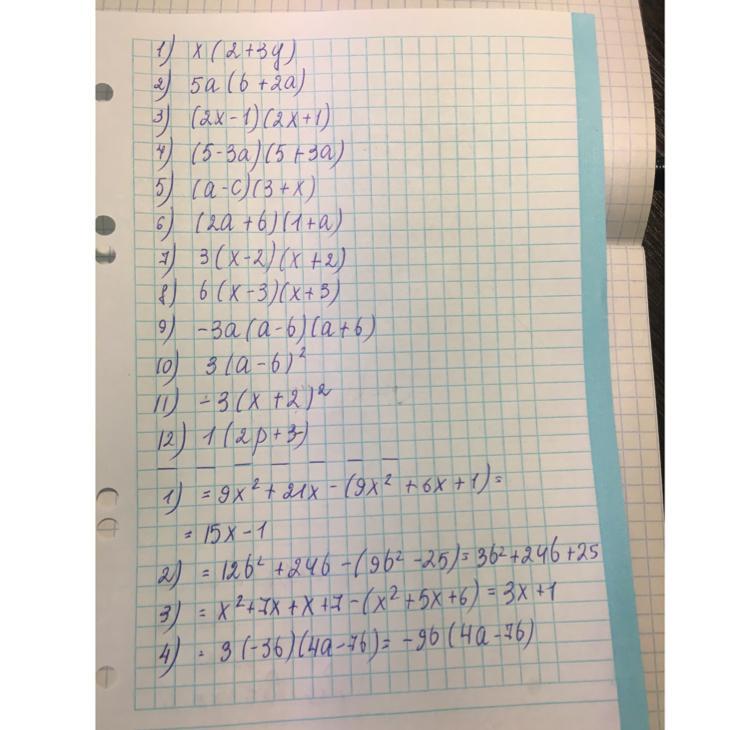 1) x(2+3y)
2) 5a(b+2a)
3) (2x-1)(2x+1)
4) (5-3a)(5+3a)
5) (a-c)(3+x)
6) (2a+b)(1+a)
7) 3(x-2)(x+2)
8) 6(x-3)(x+3)
9) -3a(a-b)(a+b)
10) 3(a-b)²
11) -3(x+2)²
12) 1(2p+3)
1) = 9x²+21x-(9x²+6x+1)=
= 15x-1
2) = 12b²+24b-(9b²-25)=3b²+24b+25
3) = x²+7x+x+7-(x²+5x+6)=3x+1
4) = 3(-3b)(4a-7b)=-9b(4a-7b)